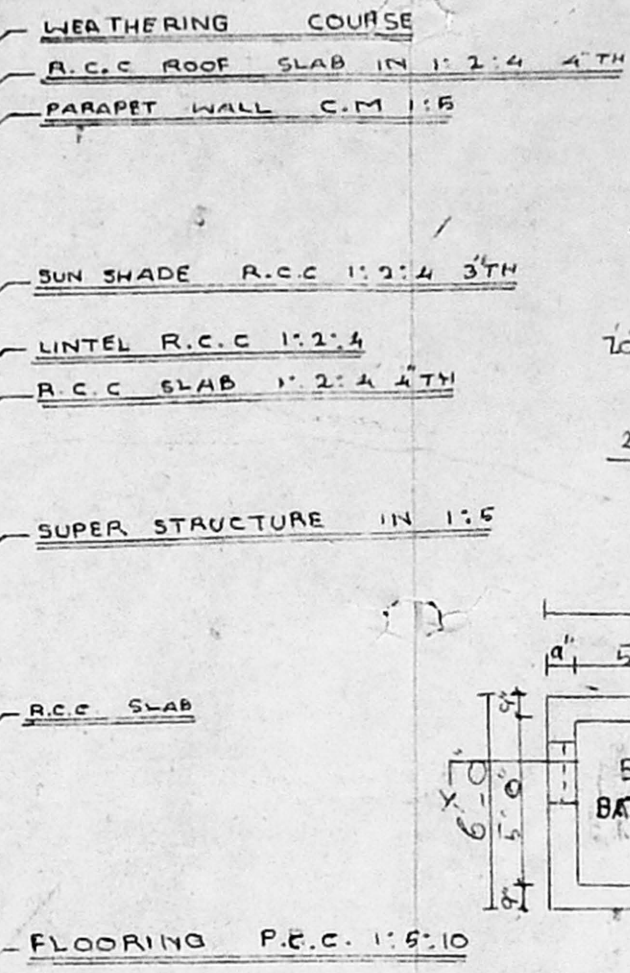 WEATHERING COURSE
R.C.C ROOF SLAB IN 1:2:4 4"TH
PARAPET WALL C.M 1:5
SUN SHADE R.C.C 1:2:4 3"TH
LINTEL R.C.C 1:2:4
R.C.C SLAB 1:2:4 4"TH
SUPER STRUCTURE IN 1:5
9" 5
R.C.C SLAB
9"
X
6'-0"
5'-0"
BA
9"
FLOORING P.C.C. 1:5:10